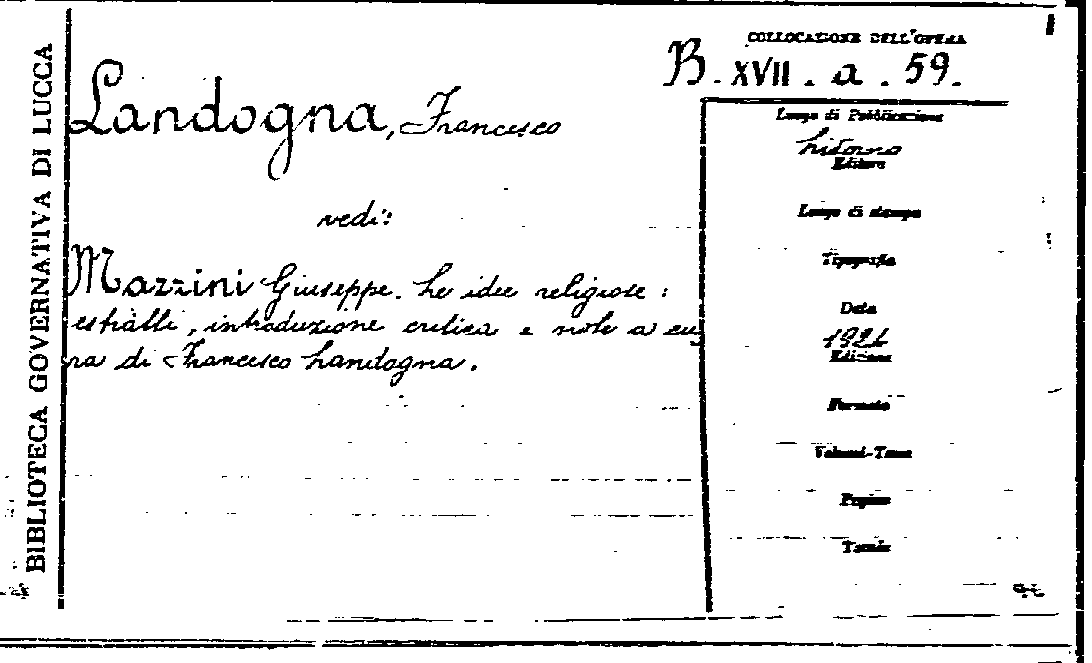 BIBLIOTECA GOVERNATIVA DI LUCCA
COLLOCAZIONE DELL'OPERA
B. XVII. a. 59.
Landogna, Francesco
vedi:
Mazzini Giuseppe. Le idee religiose:
estratti, introduzione critica e note a cu
ra di Francesco Landogna.
Luogo di Pubblicazione
Livorno
Editore
Luogo di stampa
Tipografia
Data
1921
Edizione
Formato
Volumi-Tomi
Pagine
Tavole